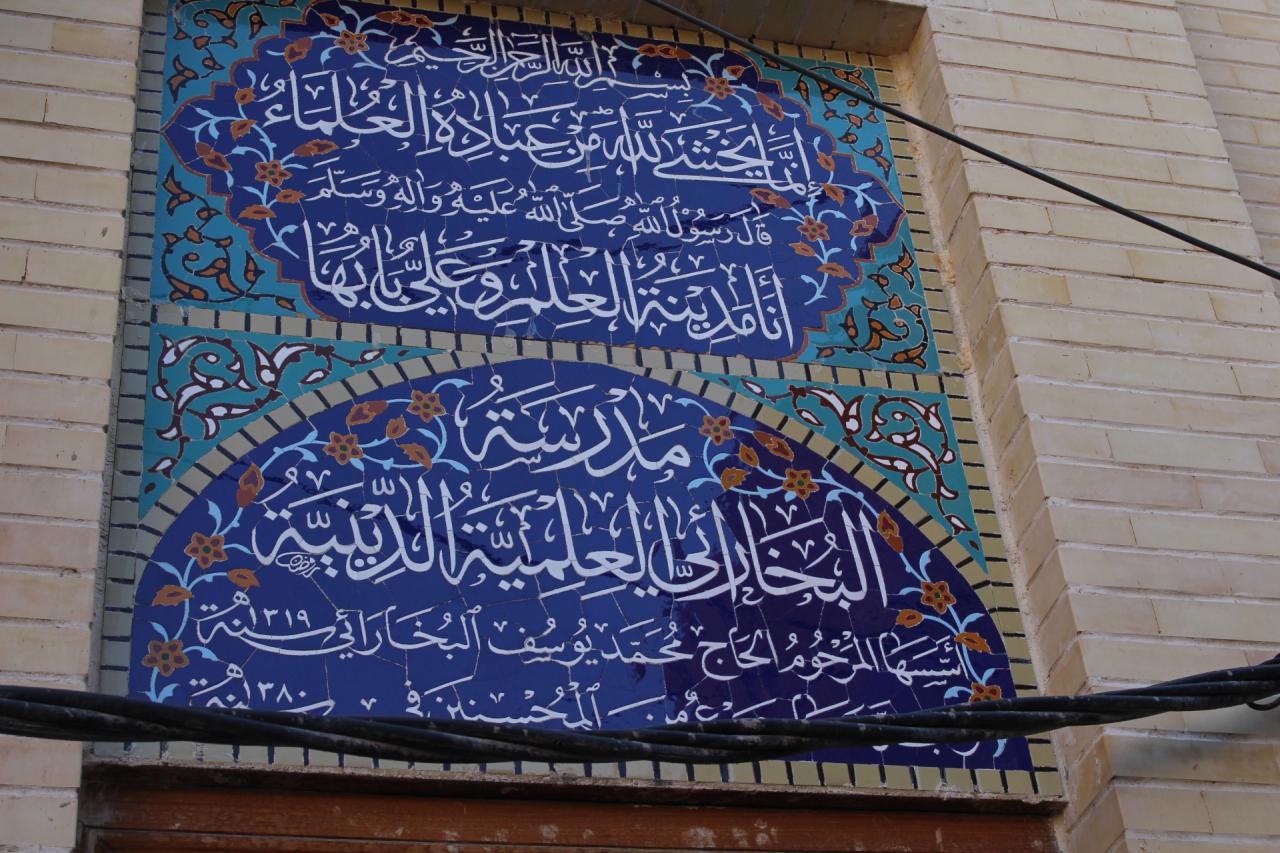 بسم الله الرحمن الرحيم
إنما يخشى الله من عباده العلماء
قال رسول الله صلى الله عليه وآله وسلم
أنا مدينة العلم وعلي بابها
مدرسة
البخارائي العلمية الدينية
أسسها المرحوم الحاج محمد يوسف البخارائي سنة ١٣١٩ هـ
من المحسنين في سنة ١٣٨٠ هـ